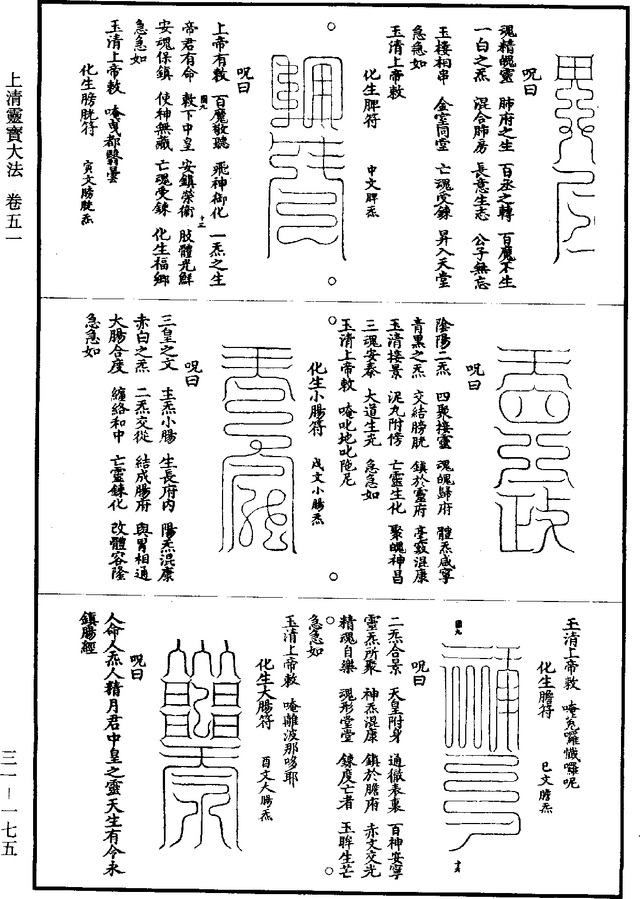 上清靈寶大法　卷五一
三一—一七五
呪曰
魂精魄靈　肺府之生　百丞之轉　百魔不生
一白之炁　混合肺房　長意生志　公子無忘
玉棱相串　金室同堂　亡魂受鍊　昇入天堂
急急如
玉清上帝敕
化生脾符　申文脾炁
呪曰
上帝有敕　百魔敬聽　飛神御化　一炁之生
帝君有命　敕下中皇　安鎮榮衛　肢體光鮮
安魂保鎮　使神無藏　亡魂受鍊　化生福鄉
急急如
玉清上帝敕　唵曳都翳曇
化生膀胱符　寅文膀胱炁
呪曰
陰陽二炁　四聚接靈　魂魄歸府　體炁咸寧
青黑之炁　交結膀胱　鎮於靈府　亭寂混康
玉清接景　泥丸附傍　亡靈生化　聚魄神昌
三魂安泰　大道生光　急急如
玉清上帝敕　唵叱地叱陁尼
化生小腸符　戌文小腸炁
呪曰
三皇之文　主炁小腸　生長府內　陽炁混康
赤白之炁　二炁交從　結成腸府　與胃相通
大腸合度　纏絡和中　亡靈鍊化　改體容隆
急急如
玉清上帝敕　唵㝹囉懺囉呢
化生膽符　巳文膽炁
呪曰
二炁合景　天皇附身　通徹表裏　百神安寧
靈炁所聚　神炁混康　鎮於膽府　赤文交光
精魂自樂　魂形堂堂　鍊度亡者　玉眸生芒
急急如
玉清上帝敕　唵離波那哆耶
化生大腸符　酉文大腸炁
呪曰
人命人炁人精月君中皇之靈天生有今永
鎮腸經